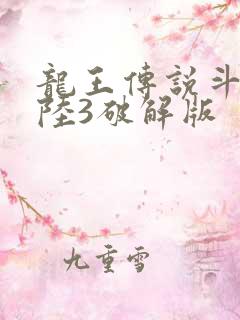 龍王傳說斗
陸3破解版
九重雪